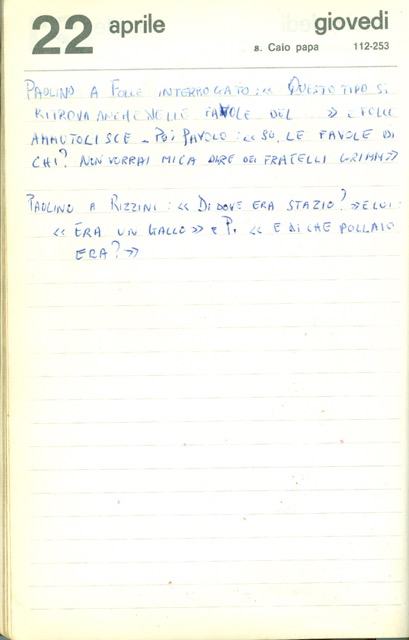 22 aprile giovedi
s. Caio papa 112-253
PAOLINO A FOLLE INTERROGATO: « QUESTO TIPO SI
RITROVA ANCHE NELLE FAVOLE DEL » E FOLLE
AMMUTOLISCE - POI PAVOLO: « SÙ, LE FAVOLE DI
CHI? NON VORRAI MICA DIRE DEI FRATELLI GRIMM»
PAOLINO A RIZZINI: « DI DOVE ERA STAZIO? » E LUI:
« ERA UN GALLO » E P. « E DI CHE POLLAIO
ERA? »